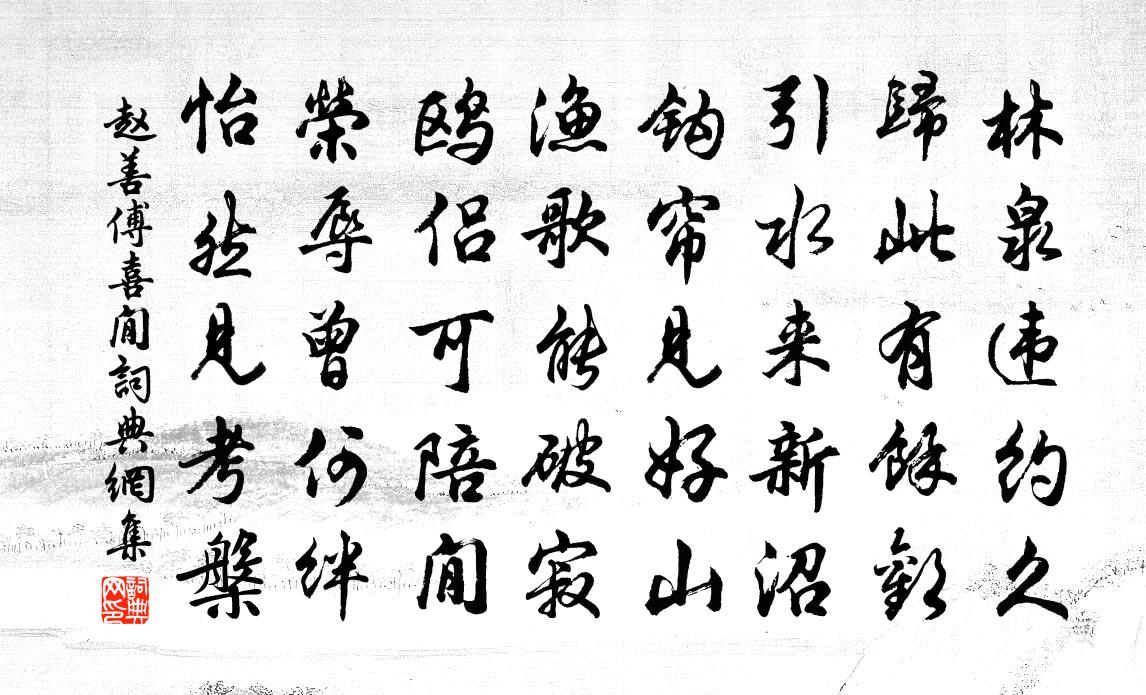 林泉违约久
歸此有餘歡
引水来新沼
鈎帘見好山
漁歌能破寂
鸥侣可陪閒
榮辱曾何绊
怡然見考槃
赵善傅喜閒詞典網集
詞典网印